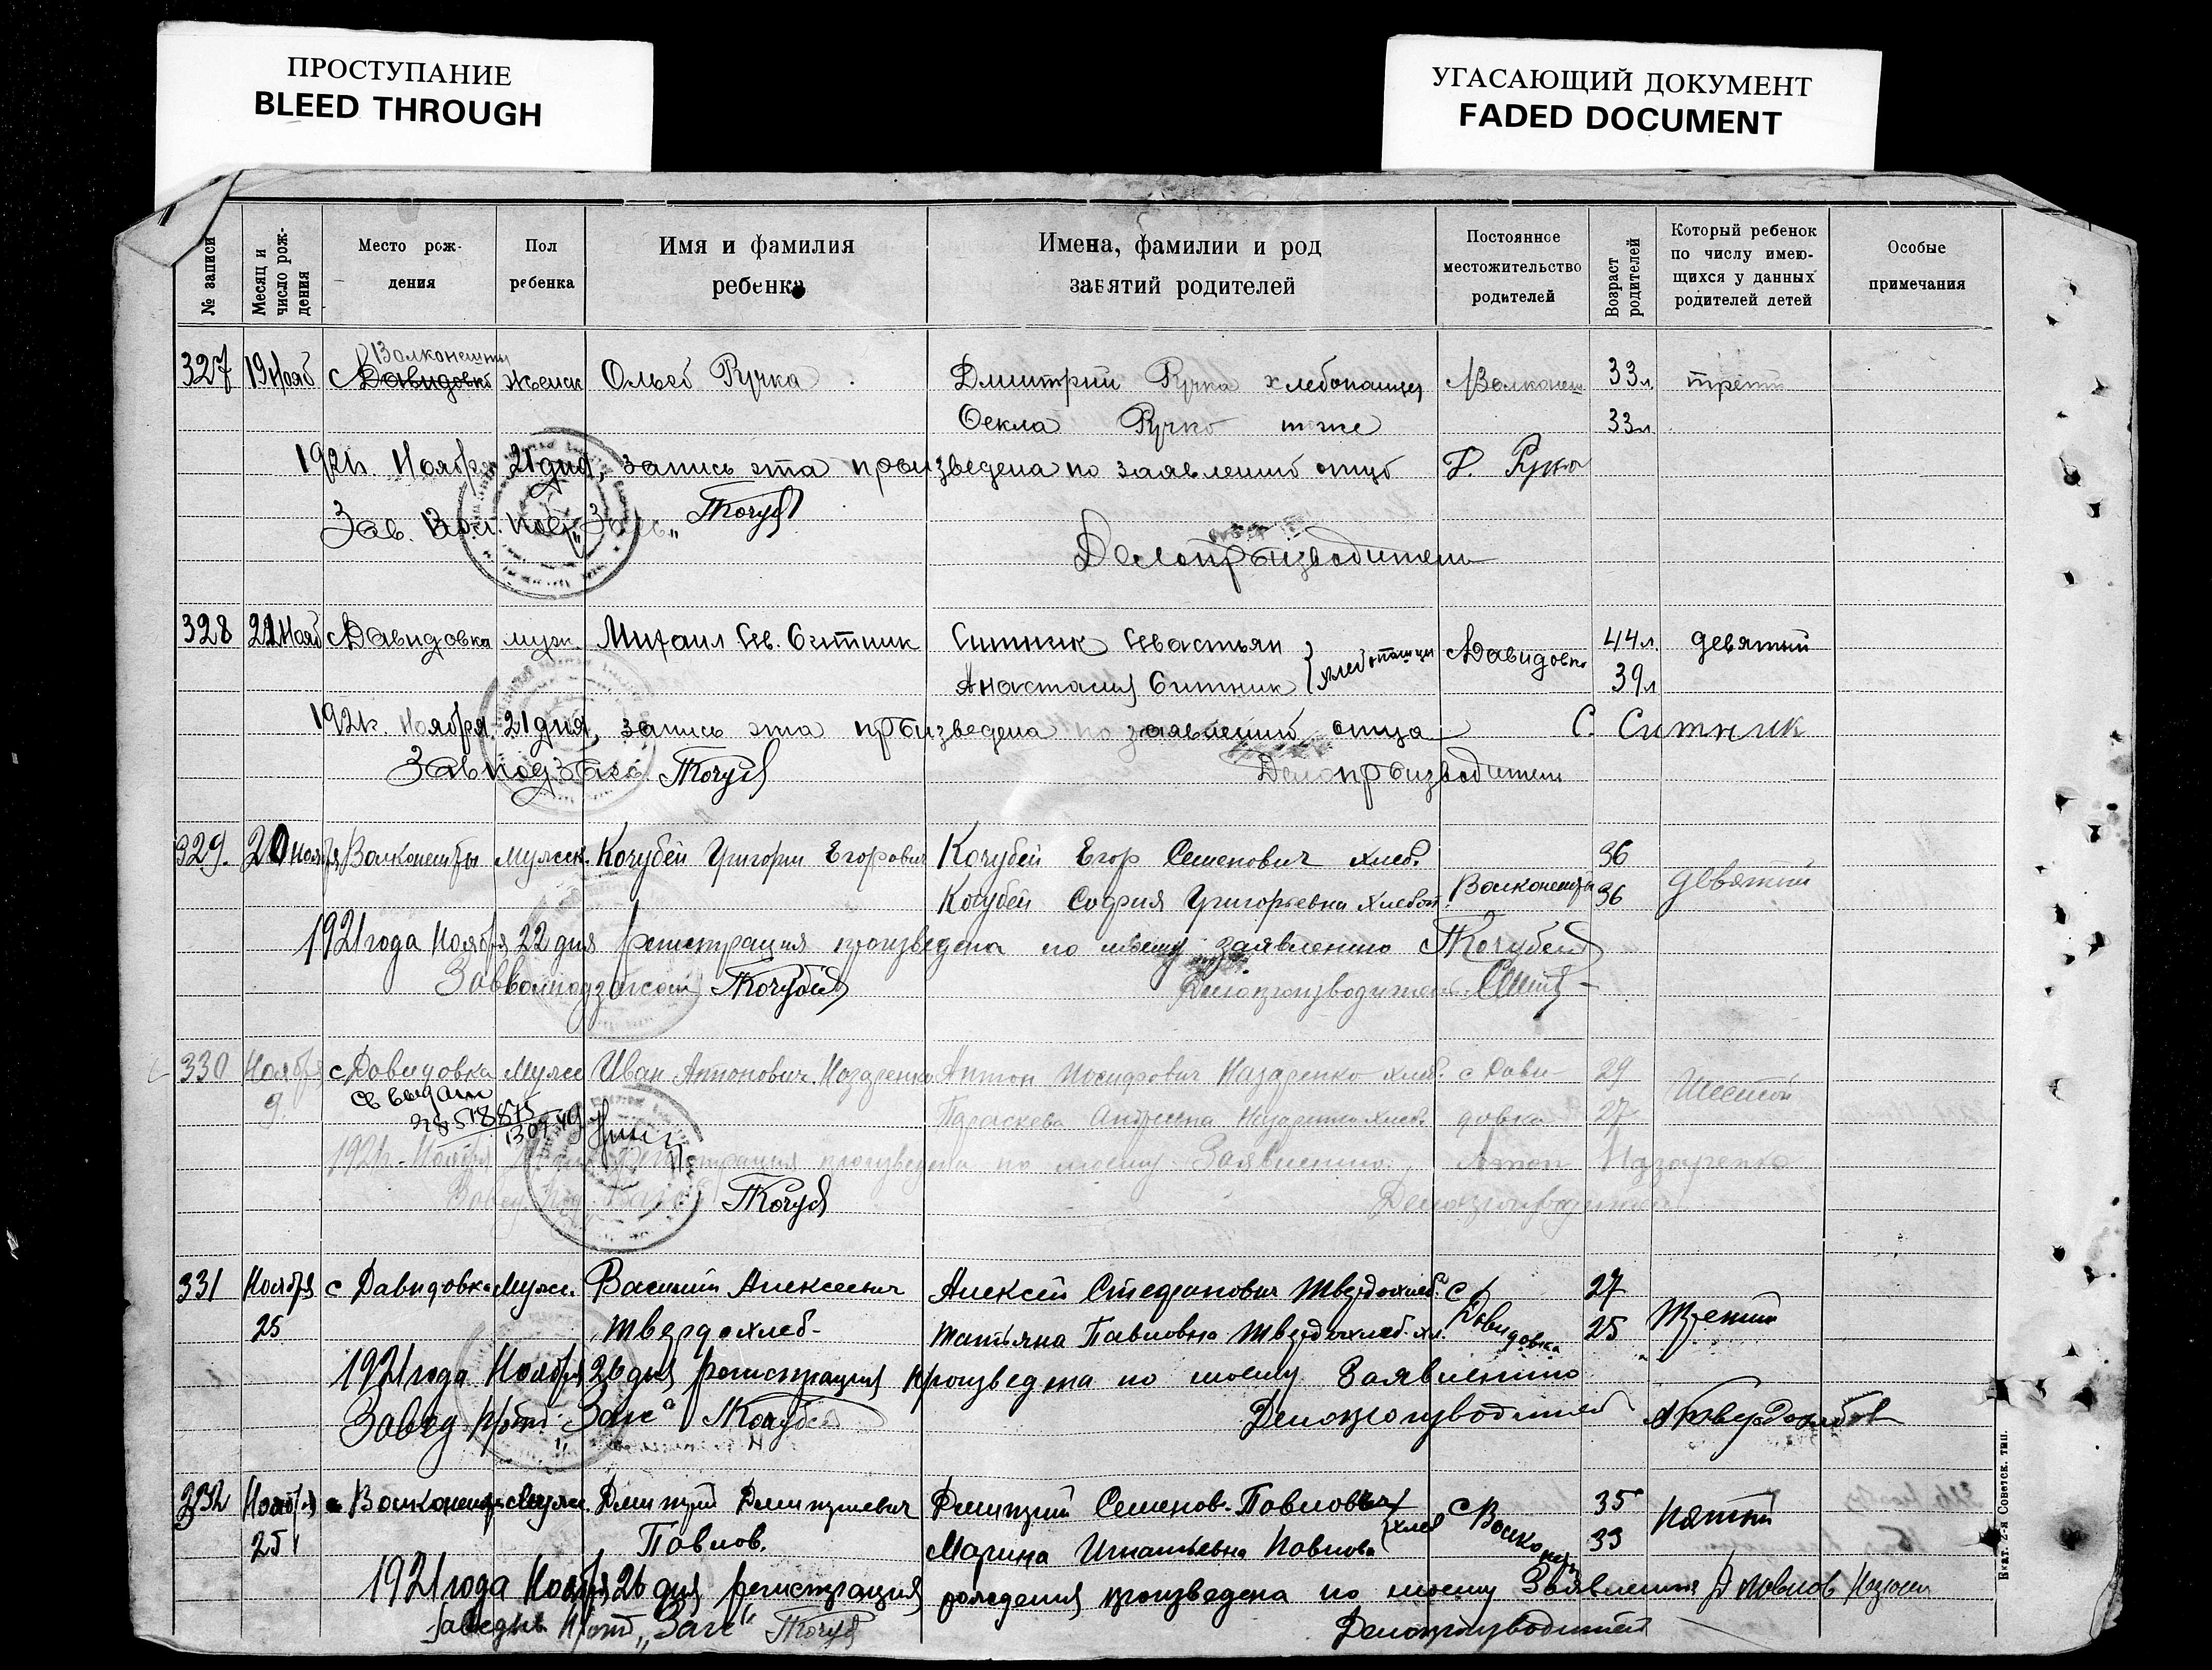 ПРОСТУПАНИЕ
BLEED THROUGH
УГАСАЮЩИЙ ДОКУМЕНТ
FADED DOCUMENT
№ записи
Месяц и число рождения
Место рож-
дения
Пол
ребенка
Имя и фамилия
ребенка
Имена, фамилии и род
занятий родителей
Постоянное
местожительство
родителей
Возраст
родителей
Который ребенок
по числу имею-
щихся у данных
родителей детей
Особые
примечания
Волконешты
327 19 Нояб с Давидовка женск Ручка Дмитрий Ручка хлебопашец Волконеш 33 л трет
Фекла Ручко тоже 33 л
1921 г. Ноября 21 дня, запись эта произведена по заявлению отца Ручка
Зав. Вол. под „Загс„ Кочуб
Делопроизводитель
328 Нояб Давидовка муж. Михаил Ситник Ситник Севастьян хлебопашцы Давидовка 44 л. девятый
Анастасия Ситник 39 л
1921 г. Ноября 21 дня, запись эта произведена по заявлению отца С. Ситник
Зав под Загс Кочуб Делопроизводитель
329. 20 ноября Волконешты Мужск. Кочубей Григорий Егорович Кочубей Егор Семенович хлеб. 36 девятый
Кочубей София Григорьевна хлебоп. Волконешты 36
1921 года Ноября 22 дня регистрация произведена по моему заявлению Кочубей
Завволподзагсом Кочубей Делопроизводитель
330 Ноября с Давидовка Мужс Иван Антонович Назаренко Антон Иосифович Назаренко хлеб. с Дави- 29 Шестой
9. св выдан Параскева Андреевна Назаренко хлеб. довка 27
1921 г. Ноября регистрация произведена по моему Заявлению, Антон Назаренко
Завед. под. Загс Кочуб Делопроизводитель
331 Ноября с Давидовка Мужс. Василий Алексеевич Алексей Стефанович Твердохлеб. с 27 Третий
25 Твердохлеб- Татьяна Павловна Твердохлеб. хл. Давидовка 25
1921 года Ноября 26 дня регистрация произведена по моему Заявлению
Завед п/отд „Загс" Кочубей Делопроизводитель А Твердохлебов
332 Ноября с Волконешты Мужс. Дмитрий Дмитриевич Дмитрий Семенов. Павлович хлеб с Волконеш 35 пятый
25 Павлов. Марина Игнатьевна Павлова 33
1921 года Ноября 26 дня регистрация рождения произведена по моему Заявлению Д Павлов
Заведыв п/отд „Загс" Кочуб Делопроизводитель
2-я Советск. тип.